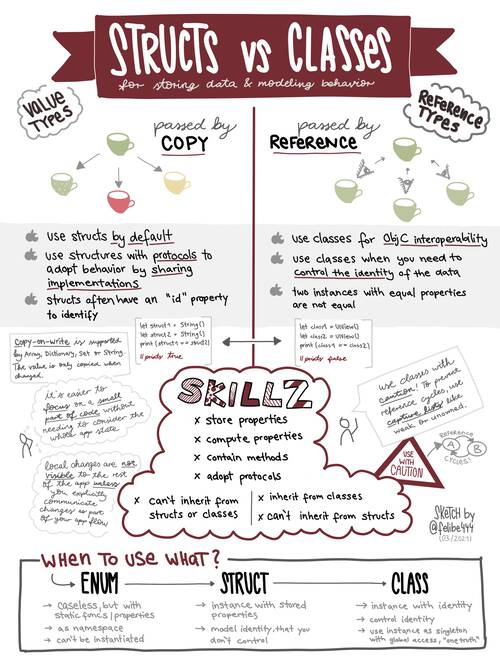 STRUCTS vs CLASSES
for storing data & modeling behavior
VALUE
TYPES
passed by
COPY
passed by
REFERENCE
REFERENCE
TYPES
use structs by default
use structures with protocols to
adopt behavior by sharing
implementations
structs often have an "id" property
to identify
use classes for ObjC interoperability
use classes when you need to
control the identity of the data
two instances with equal properties
are not equal
let struct1 = String()
let struct2 = String()
print (struct1 == struct2)
//prints true
let class1 = UIView()
let class2 = UIView()
print (class1 == class2)
//prints false
Copy-on-write is supported
by Array, Dictionary, Set or String.
The value is only copied when
changed.
it's easier to
focus on a small
part of code without
needing to consider the
whole app state
local changes are not
visible to the rest
of the app unless
you explicitly
communicate
changes as part
of your app flow
SKILLZ
x store properties
x compute properties
x contain methods
x adopt protocols
x can't inherit from
structs or classes
x inherit from classes
x can't inherit from structs
use classes with
caution! To prevent
reference cycles, use
capture lists like
weak or unowned.
USE
WITH
CAUTION
REFERENCE
A B
CYCLES!
SKETCH by
@felibe444
(03/2021)
WHEN TO USE WHAT?
ENUM
→ caseless, but with
static funcs | properties
→ as namespace
→ can't be instantiated
STRUCT
→ instance with stored
properties
→ model identity that you
don't control
CLASS
→ instance with identity
→ control identity
→ use instance as singleton
with global access, "one truth"